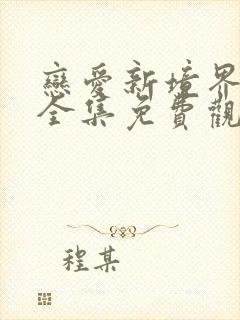 戀愛新境界
全集免費觀
程某